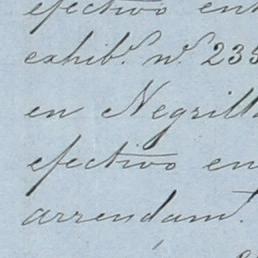 efectivo ent
exhib.º nº 235
en Negrill
efectivo en
arrendamt.º